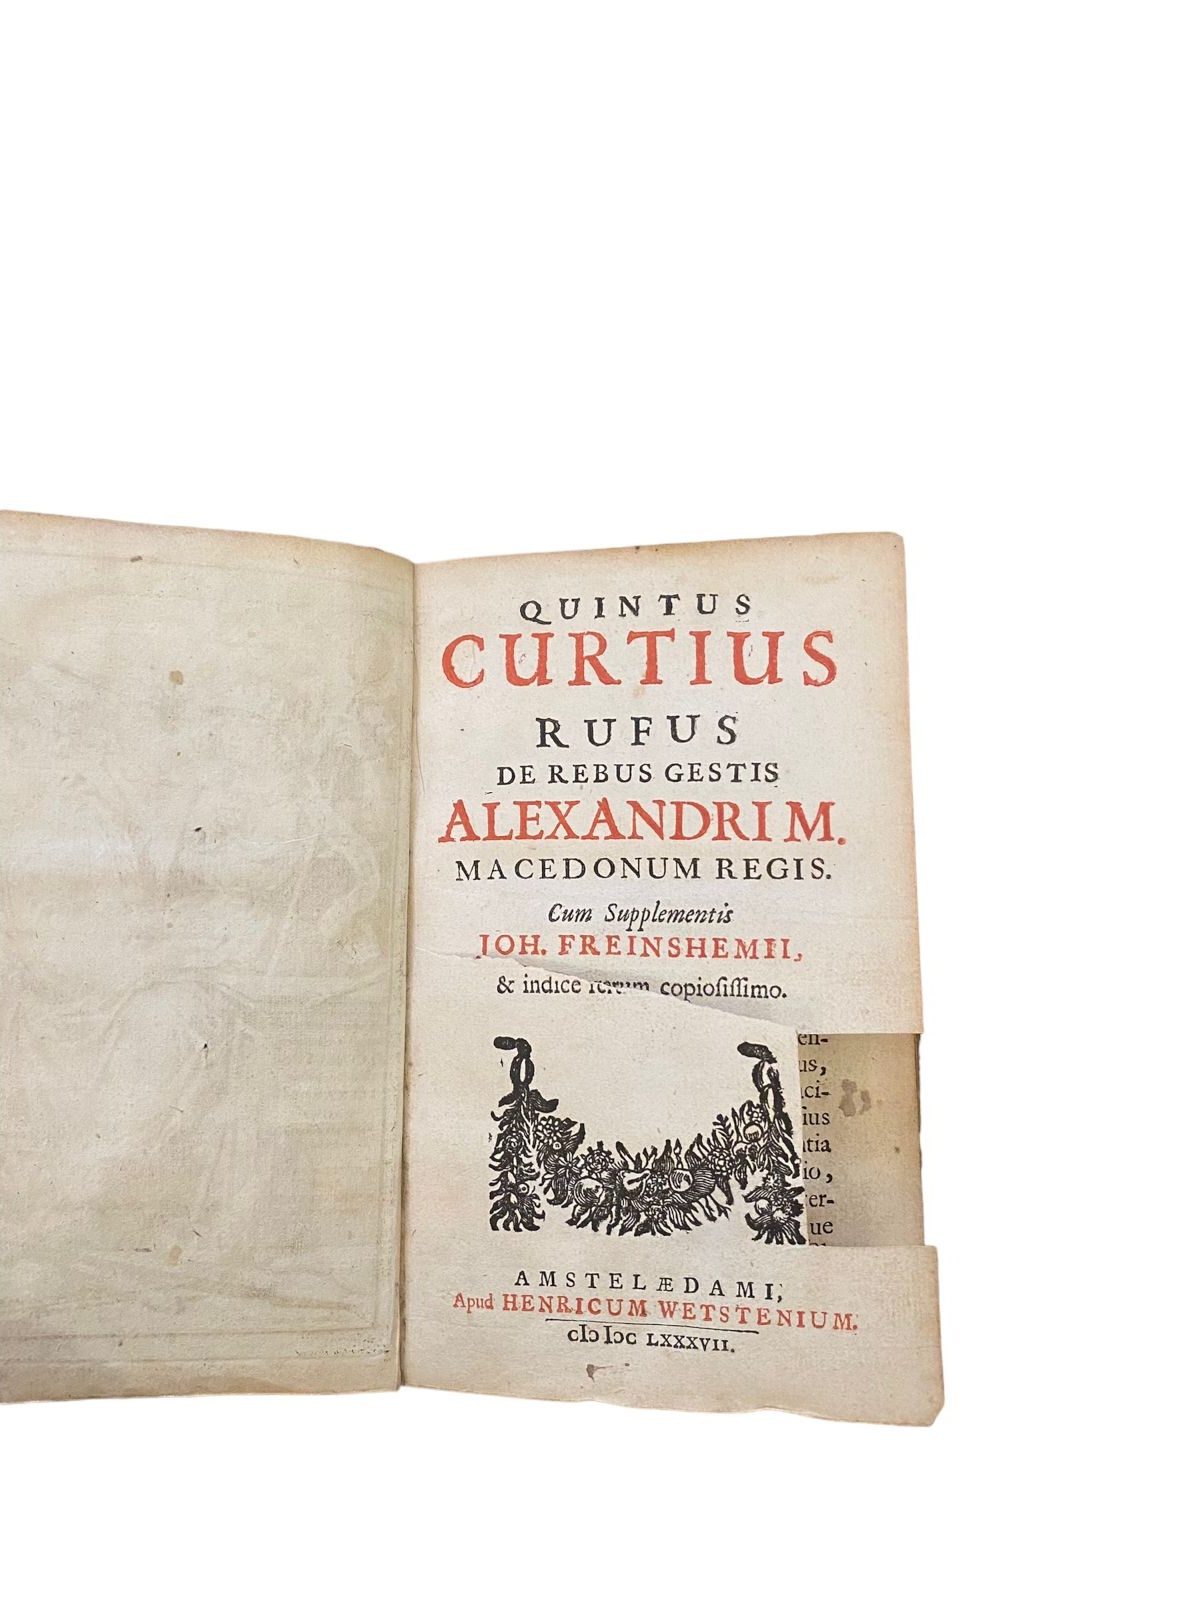 QUINTUS
CURTIUS
RUFUS
DE REBUS GESTIS
ALEXANDRI M.
MACEDONUM REGIS.
Cum Supplementis
JOH. FREINSHEMII,
& indice rerum copiosissimo.
en-
us,
ci-
sius
tia
io,
er-
ue
AMSTELÆDAMI,
Apud HENRICUM WETSTENIUM.
cIↄ Iↄc LXXXVII.